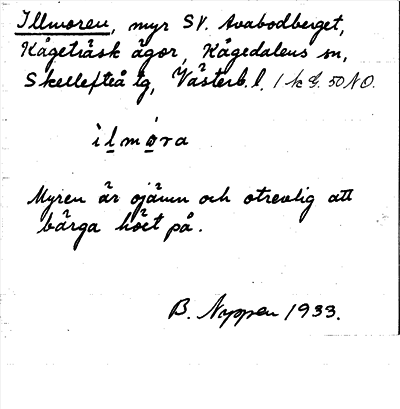 Illmoren, myr SV. Avabodberget,
Kågeträsk ägor, Kågedalens sn,
Skellefteå tg, Västerb. l. 1 k G. 50 NO.
ìl̲mo̲ra
Myren är ojämn och otrevlig att
bärga höet på.
B. Nyppen 1933.